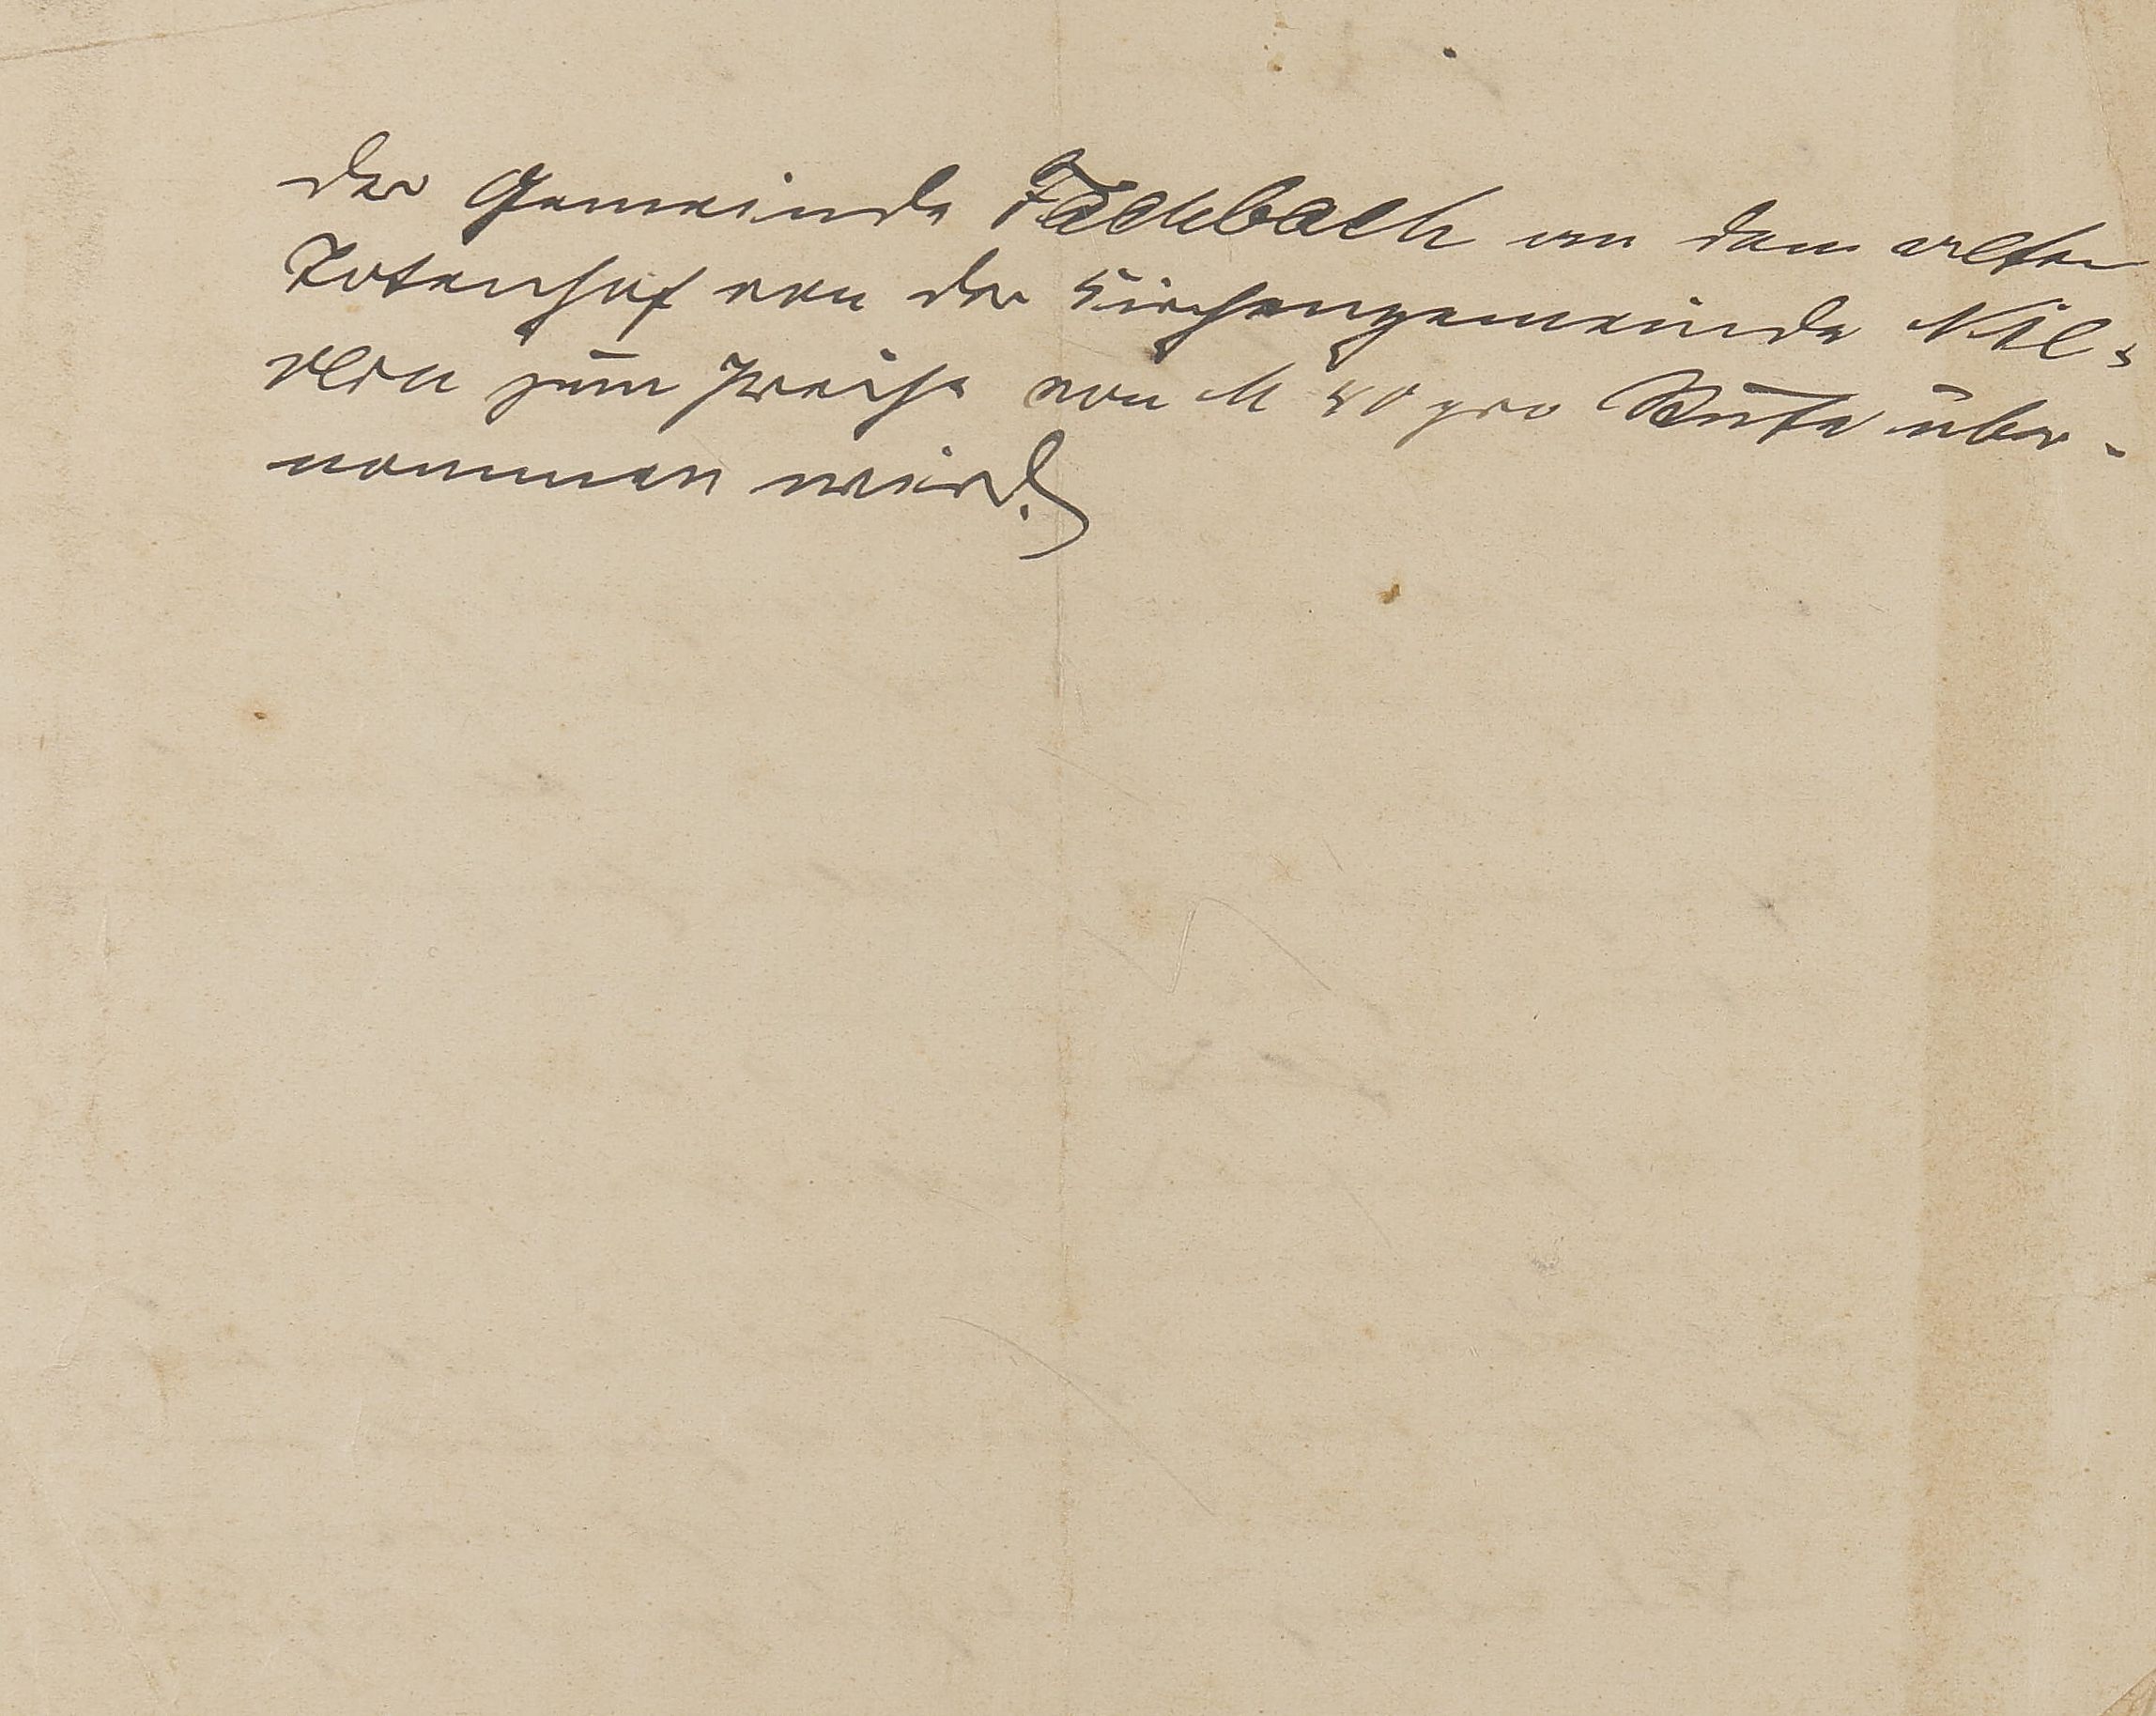 der Gemeinde Fachbach an dem alten
Totenhof von der Kirchengemeinde Nie-
vern zum Preise von M 40 pro Rute über-
nommen wird.